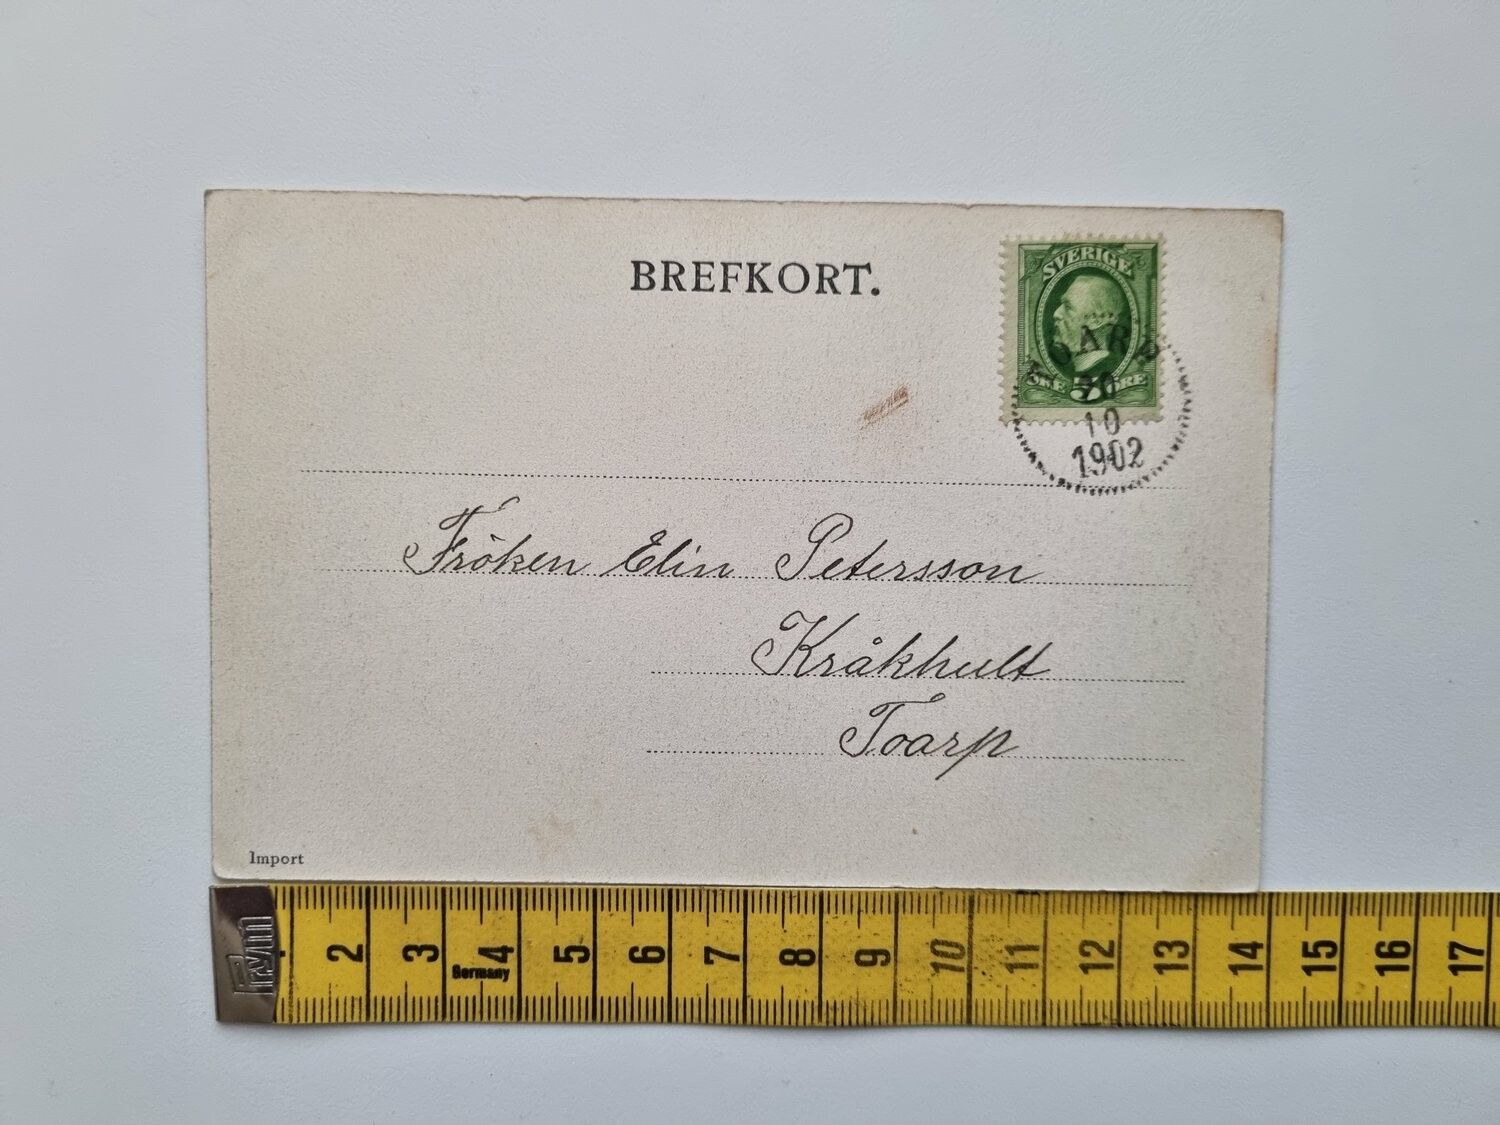 BREFKORT.
SVERIGE
ÖRE 5 ÖRE
TOARP
10
1902
Fröken Elin Petersson
Kråkhult
Toarp
Import
Prym
2 3 4 5 6 7 8 9 10 11 12 13 14 15 16 17
Germany